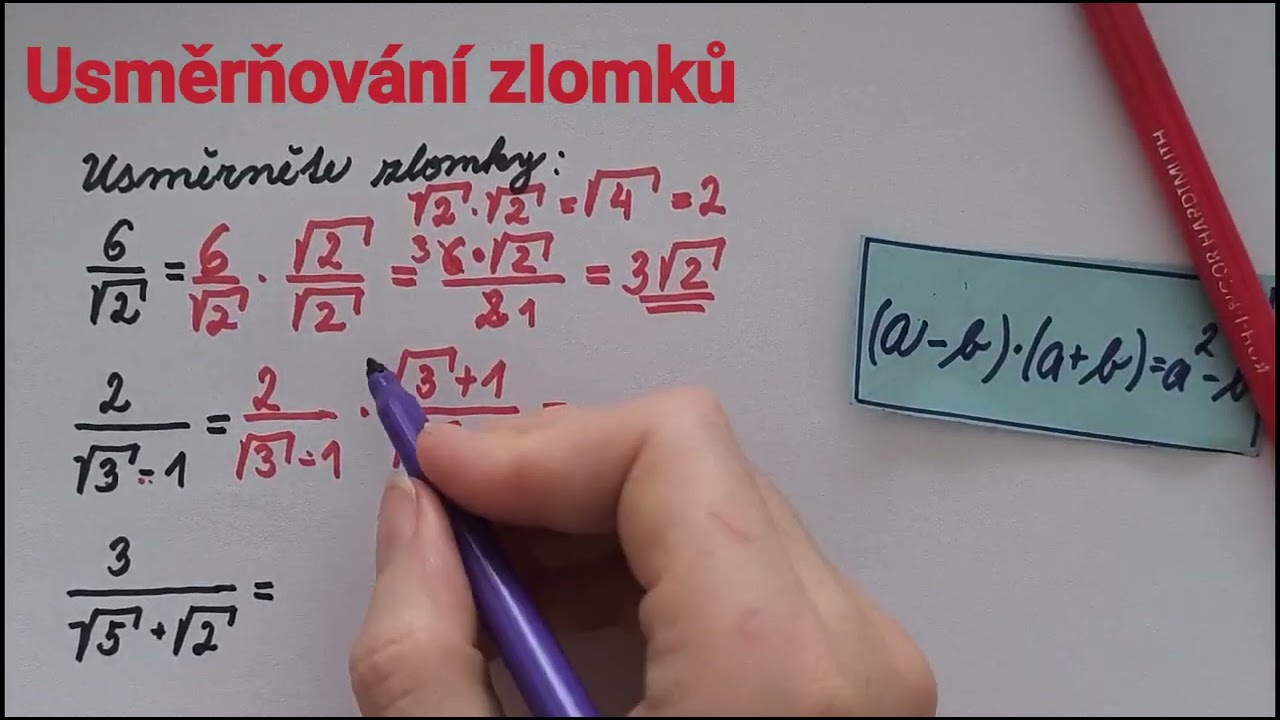 Usměrňování zlomků
Usměrněte zlomky:
√2 · √2 = √4 = 2
6/√2 = 6/√2 · √2/√2 = 3 6·√2/2 1 = 3√2
2/√3 - 1 = 2/√3 - 1 · √3 + 1
3/√5 + √2 =
(a - b) · (a + b) = a² -
KOH-I-NOOR HARDTMUTH